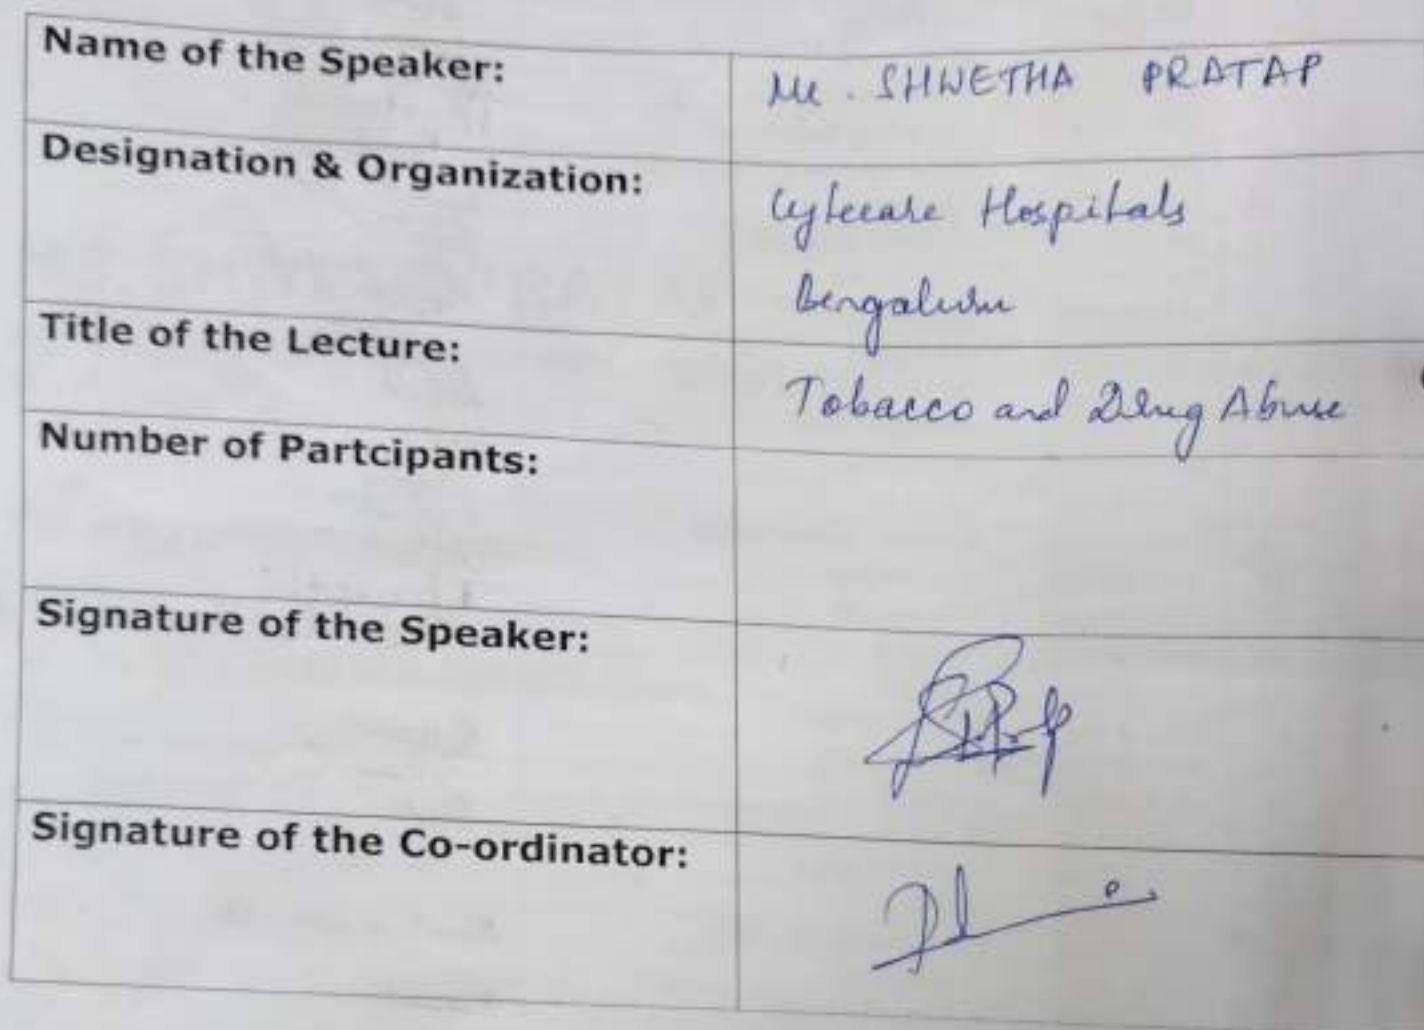 Name of the Speaker:
SHWETHA PRATAP
Designation & Organization:
Cytecare Hospitals
Bengaluru
Title of the Lecture:
Tobacco and Drug Abuse
Number of Partcipants:
Signature of the Speaker:
Signature of the Co-ordinator: